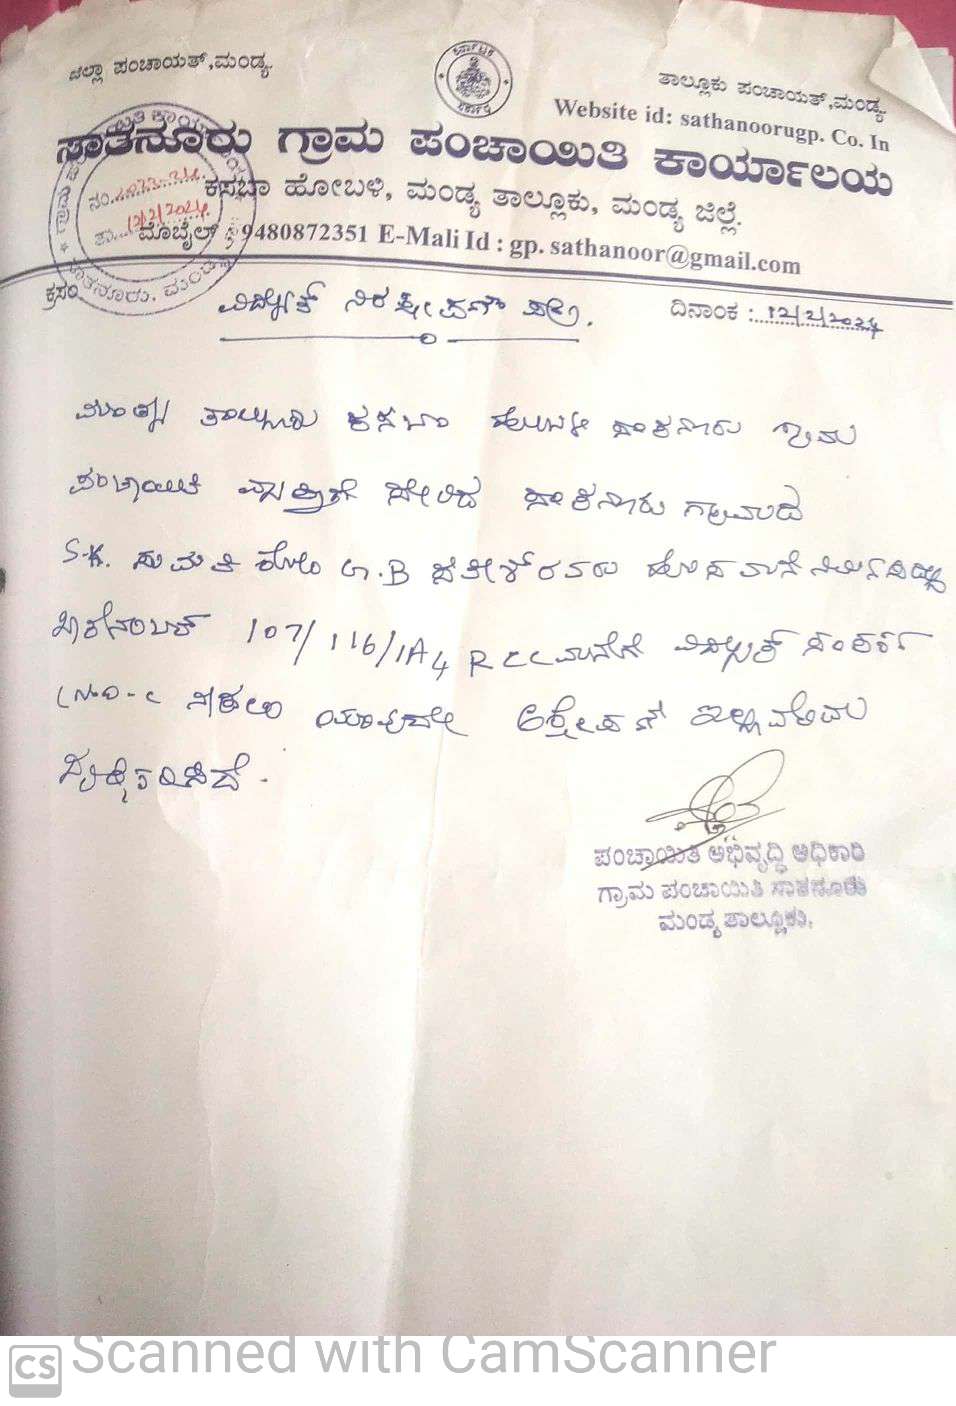 ಜಿಲ್ಲಾ ಪಂಚಾಯತ್,ಮಂಡ್ಯ.
ಕರ್ನಾಟಕ
ಸರ್ಕಾರ
ತಾಲ್ಲೂಕು ಪಂಚಾಯತ್,ಮಂಡ್ಯ
Website id: sathanoorugp. Co. In
ಸಾತನೂರು ಗ್ರಾಮ ಪಂಚಾಯಿತಿ ಕಾರ್ಯಾಲಯ
ಕಸಭಾ ಹೋಬಳಿ, ಮಂಡ್ಯ ತಾಲ್ಲೂಕು, ಮಂಡ್ಯ ಜಿಲ್ಲೆ.
ನಂ. 2023-24
ತಾ. 12/2/2024
ಸಾತನೂರು. ಮಂಡ್ಯ
ಮೊಬೈಲ್ : 9480872351 E-Mali Id : gp. sathanoor@gmail.com
ಕ್ರಸಂ
ದಿನಾಂಕ : 12/2/2024
ವಿದ್ಯುತ್ ನಿರಕ್ಷೇಪಣಾ ಪತ್ರ.
ಮಂಡ್ಯ ತಾಲ್ಲೂಕು ಕಸಬಾ ಹೋಬಳಿ ಸಾತನೂರು ಗ್ರಾಮ
ಪಂಚಾಯಿತಿ ವ್ಯಾಪ್ತಿಗೆ ಸೇರಿದ ಸಾತನೂರು ಗ್ರಾಮದ
S.K. ಸುಮತಿ ಕೋಂ G.B ಸತೀಶ್ ರವರು ಹೊಸ ಮನೆ ನಿರ್ಮಿಸಿದ್ದು
ಖಾತೆನಂಬರ್ 107/116/1A4 RCC ಮನೆಗೆ ವಿದ್ಯುತ್ ಸಂಪರ್ಕ
ನೀಡಲು ಯಾವುದೇ ಆಕ್ಷೇಪಣೆ ಇಲ್ಲವೆಂದು
ದೃಢೀಕರಿಸಿದೆ.
ಪಂಚಾಯಿತಿ ಅಭಿವೃದ್ಧಿ ಅಧಿಕಾರಿ
ಗ್ರಾಮ ಪಂಚಾಯಿತಿ ಸಾತನೂರು
ಮಂಡ್ಯ ತಾಲ್ಲೂಕು.
CS Scanned with CamScanner